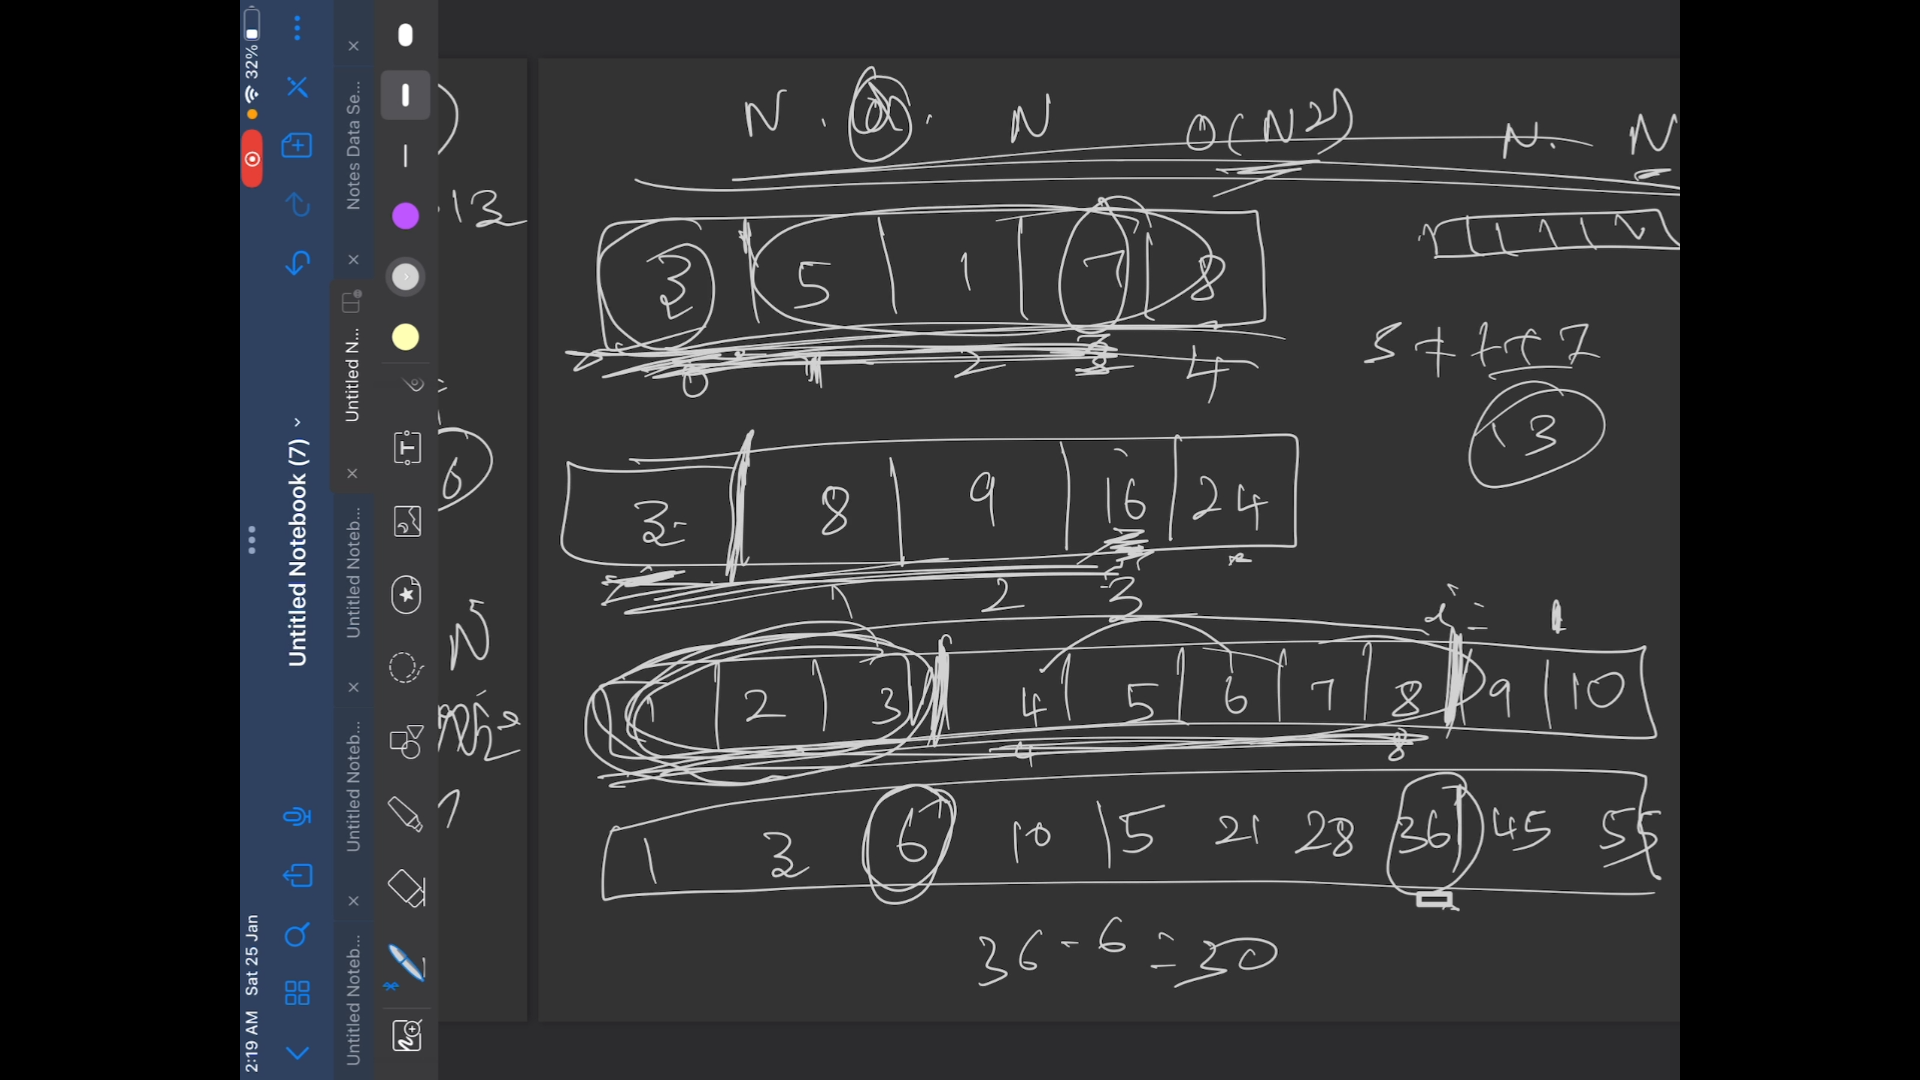 2:19 AM Sat 25 Jan
32%
Untitled Notebook (7)
Untitled Noteb...
Untitled Noteb...
Untitled Noteb...
Untitled N...
Notes Data Se...
N . . N O(N2) N. N
13
3 5 1 7 8
0 1 2 3 4
5 + 1 + 7
13
3 8 9 16 24
2 3
6
N
1 2 3 4 5 6 7 8 9 10
4 8
1 3 6 10 15 21 28 36 45 55
36 - 6 = 30